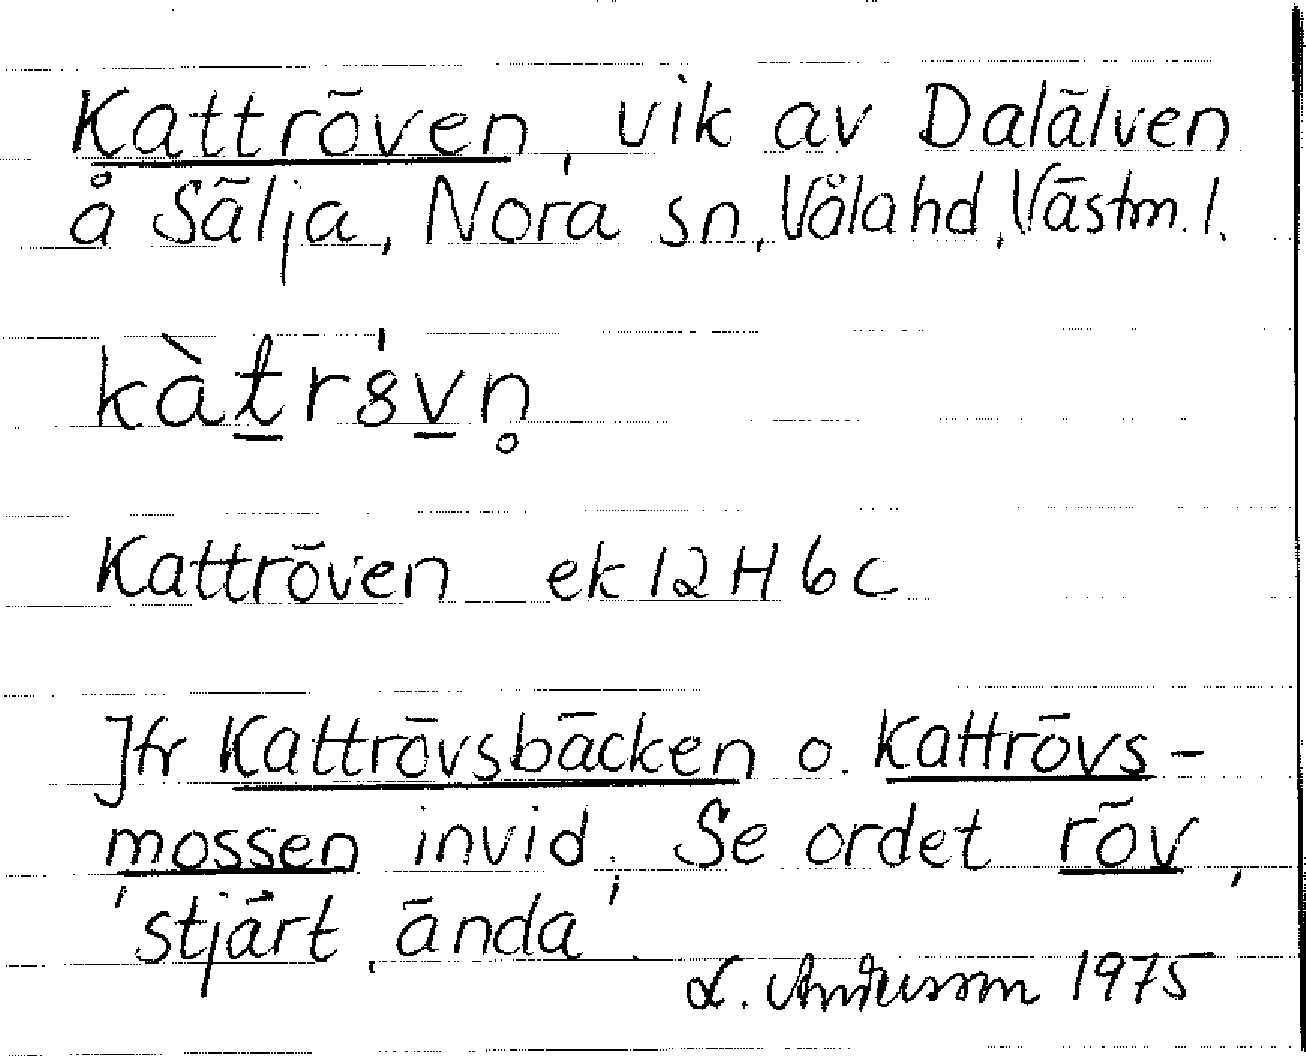 Kattröven, vik av Dalälven
å Sälja, Nora sn, Våla hd, Västm. l.
kàtrövn̥
Kattröven ek 12H6c
Jfr Kattrövsbäcken o. Kattrövs-
mossen invid; Se ordet röv,
'stjärt, ända'.
L. Andersson 1975